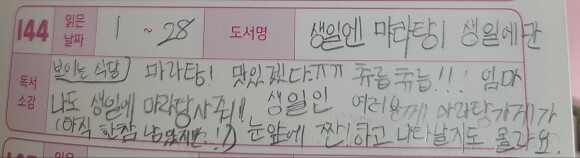 144 읽은 날짜 1 ~ 28 도서명 생일엔 마라탕! 생일에만
독서 소감 보이는 식당] 마라탕! 맛있겠다ㅠㅠ 츄릅츄릅!!! 엄마
나도 생일에 마라탕사줘!! 생일인 여러분께 마라탕가게가
(아직 한참 남았지만..!) 눈앞에 짠!하고 나타날지도 몰라요.
읽은